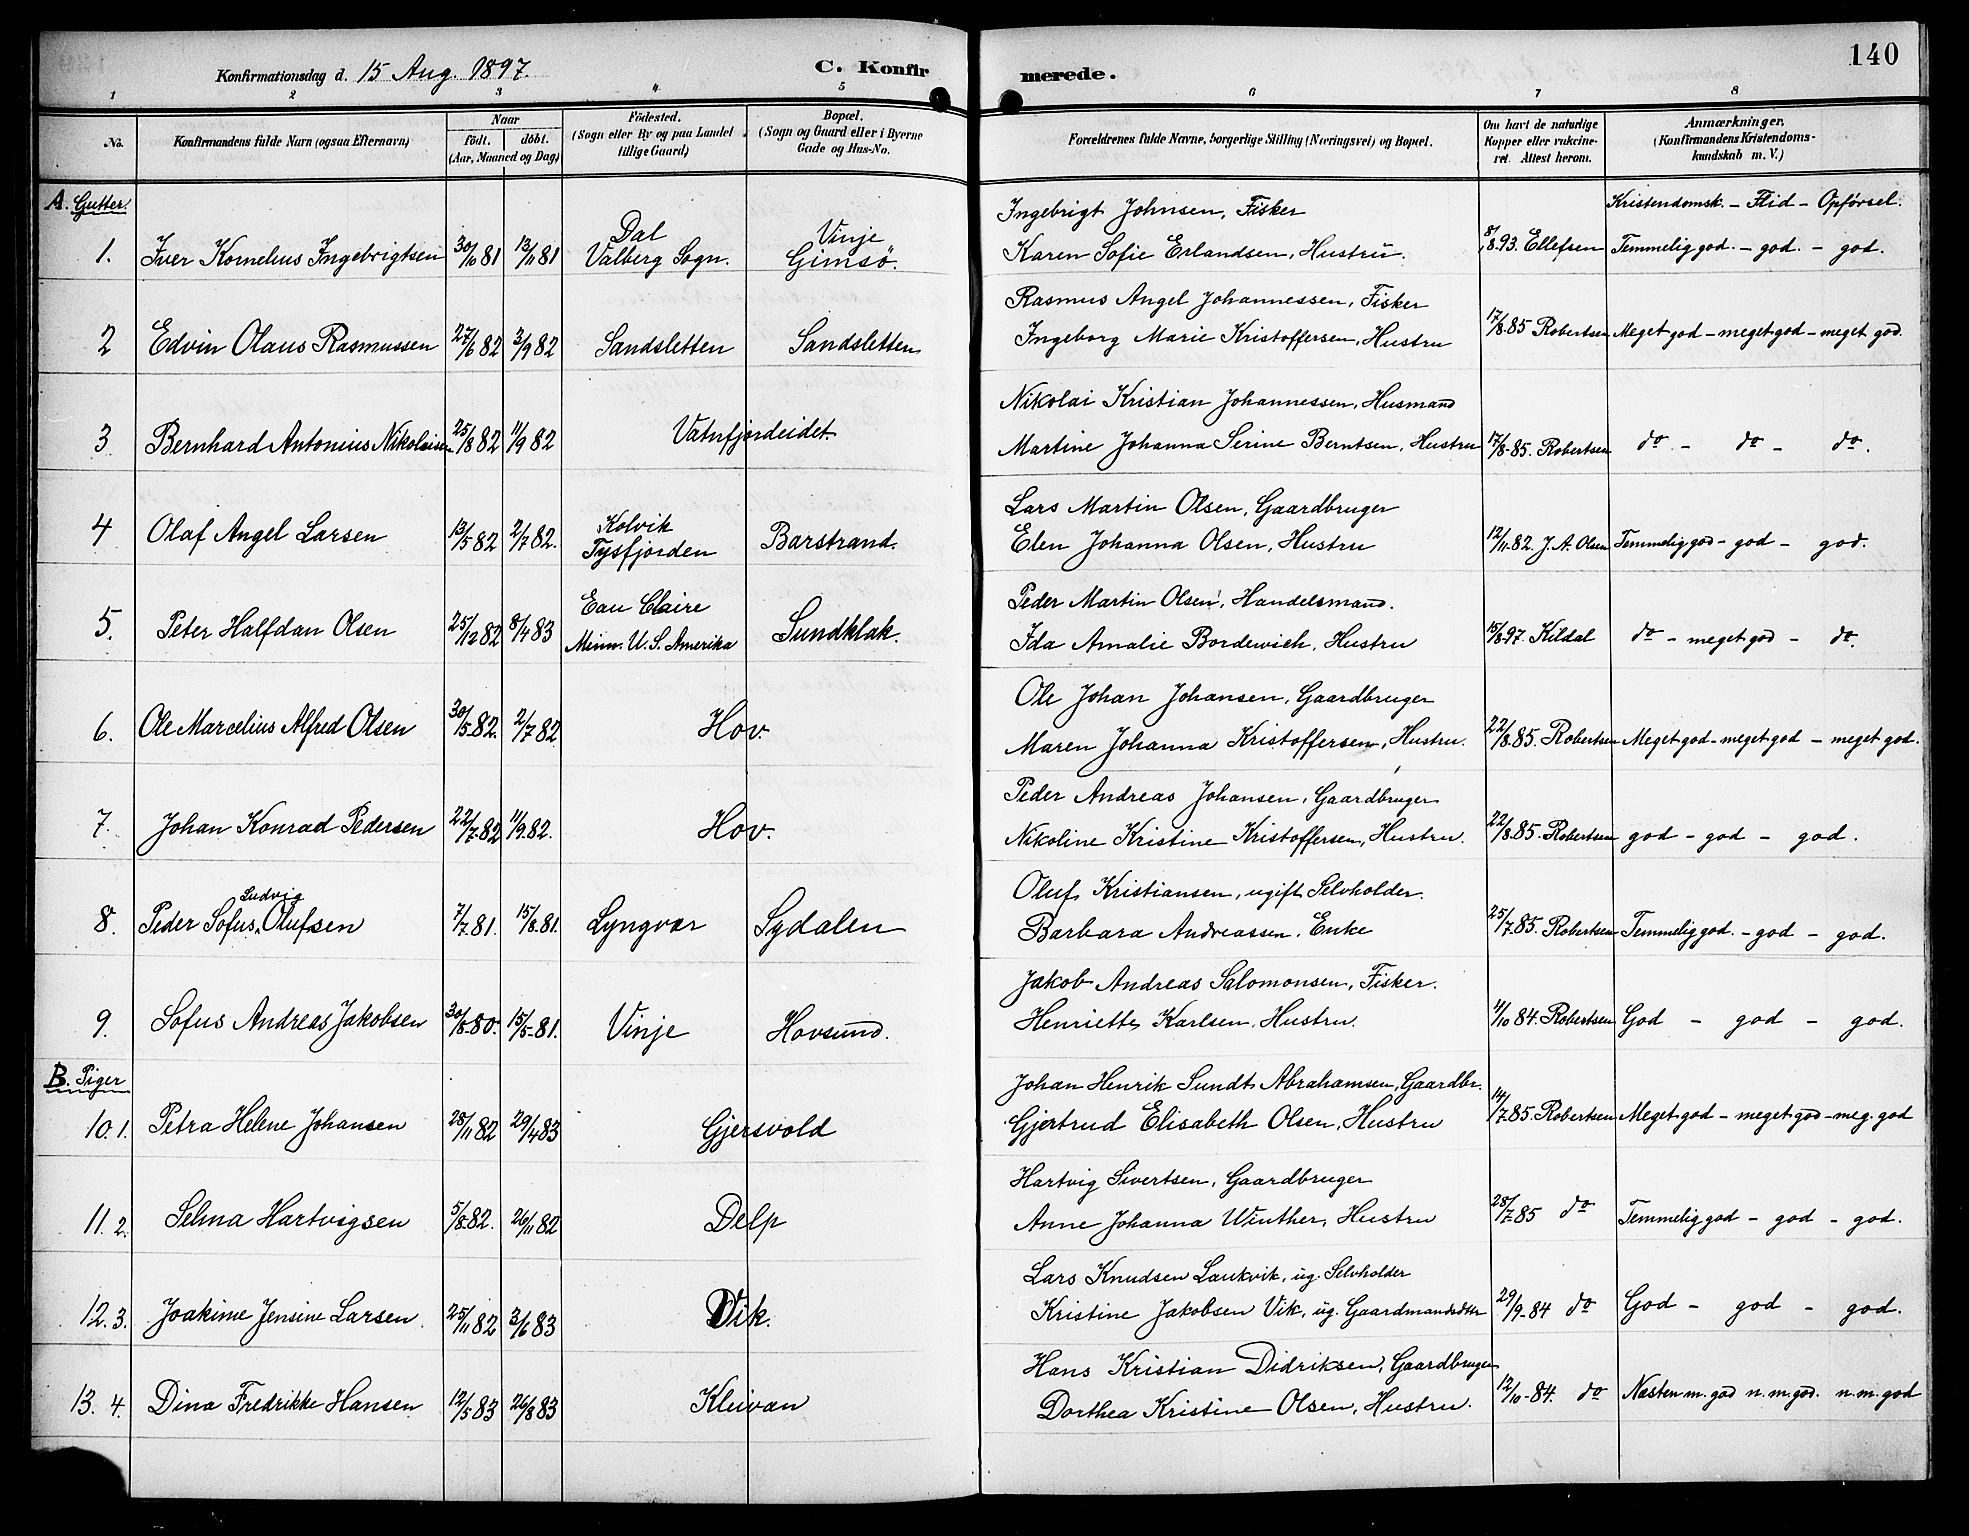 140
Konfirmationsdag d. 15 Aug. 1897.
C. Konfirmerede.
1 2 3 4 5 6 7 8
No.
Konfirmandens fulde Navn (ogsaa Efternavn)
Naar
födt. döbt.
(Aar, Maaned og Dag)
Födested.
(Sogn eller By og paa Landet
tillige Gaard)
Bopæl.
(Sogn og Gaard eller i Byerne
Gade og Hus-No.
Forældrenes fulde Navne, borgerlige Stilling (Næringsvei) og Bopæl.
Om havt de naturlige
Kopper eller vakcine-
ret. Attest herom.
Anmærkninger.
(Konfirmandens Kristendoms-
kundskab m. V.)
A. Gutter.
Kristendomsk. – Flid – Opførsel.
1. Iver Kornelius Ingebrigtsen 30/10 81 13/11 81 Dal Valberg Sogn. Vinje Gimsö.
Ingebrigt Johnsen, Fisker
Karen Sofie Erlandsen, Hustru. 8/8.93. Ellefsen Temmelig god. – god. – god.
2 Edvin Olaus Rasmussen 27/6 82 3/9 82 Sandsletten Sandsletten
Rasmus Angel Johannessen, Fisker
Ingeborg Marie Kristoffersen, Hustru 17/8.85 Robertsen Meget god – meget god – meget god.
3. Bernhard Antonius Nikolaisen 25/8 82 11/9 82 Vatnfjordeidet.
Nikolai Kristian Johannessen, Husmand
Martine Johanna Serine Berntsen, Hustru 17/8-85. Robertsen do – do – do.
4 Olaf Angel Larsen 13/5 82 2/7 82. Kolvik Tysfjorden Barstrand.
Lars Martin Olsen, Gaardbruger
Elen Johanna Olsen, Hustru 12/11-82. J. A. Olsen Temmelig god – god – god.
5. Peter Halfdan Olsen 25/12 82 8/4 83 Eau Claire Minn. U. S. Amerika Sundklak.
Peder Martin Olsen, Handelsmand.
Ida Amalie Bordewich, Hustru 15/8.97. Kildal do – meget god – do.
6. Ole Marcelius Alfred Olsen 30/5.82. 2/7 82 Hov.
Ole Johan Johansen, Gaardbruger
Maren Johanna Kristoffersen, Hustru. 22/8.85. Robertsen Meget god – meget god – meget god.
7. Johan Konrad Pedersen 22/7.82 11/9.82. Hov.
Peder Andreas Johansen, Gaardbruger
Nikoline Kristine Kristoffersen, Hustru. 22/8.85. Robertsen god – god – god.
8. Peder Sofus Ludvig Olufsen 7/7.81. 15/8.81. Lyngvær Sydalen
Oluf Kristiansen, ugift Selvholder.
Barbara Andreassen, Enke 25/7.85. Robertsen Temmelig god. – god – god.
9. Sofus Andreas Jakobsen 30/8-80. 15/5-81. Vinje Hovsund.
Jakob Andreas Salomonsen, Fisker.
Henriette Karlsen, Hustru. 4/10 84. Robertsen God – god – god.
B. Piger
10. 1. Petra Helene Johansen 28/11 82 29/4 83 Gjersvold
Johan Henrik Sundt Abrahamsen, Gaardbr.
Gjertrud Elisabeth Olsen, Hustru 14/7.85. Robertsen Meget god – meget god – meg. god
11. 2. Selma Hartvigsen 5/8.82. 26/11 82 Delp
Hartvig Sivertsen, Gaardbruger
Anne Johanna Winther, Hustru 28/7.85 do Temmelig god – god – god.
12. 3. Joakime Jensine Larsen. 25/11 82 3/6 83 Vik.
Lars Knudsen Laukvik, ug. Selvholder
Kristine Jakobsen Vik, ug. Gaardmandsdtter 29/9-84 do God – god – god.
13. 4. Dina Fredrikke Hansen 12/5 83 26/8 83 Kleivan
Hans Kristian Didriksen, Gaardbruger
Dorthea Kristine Olsen, Hustru. 12/10-84. do Næsten m. god n. m. god. n. m. god